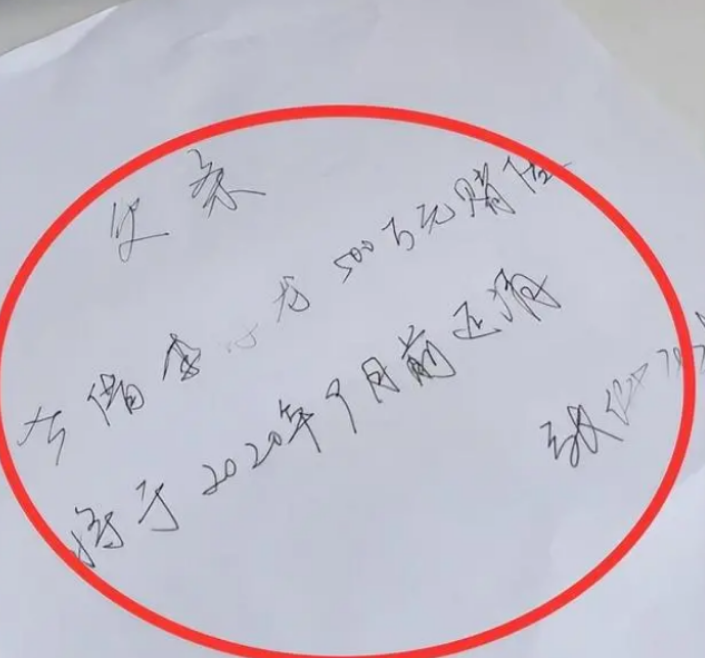 欠条
今借李 龙 500万元赌债
将于2020年9月前还清